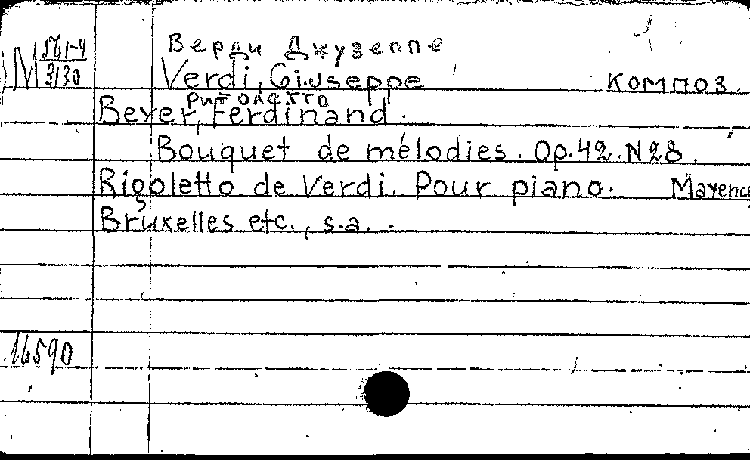 Верди Джузеппе
M 561-4
3130
Verdi, Giuseppe композ.
Риголетто
Beyer, Ferdinand.
Bouquet de mélodies. Op.42. N28.
Rigoletto de Verdi. Pour piano. Mayence
Bruxelles etc., s.a. -
16590